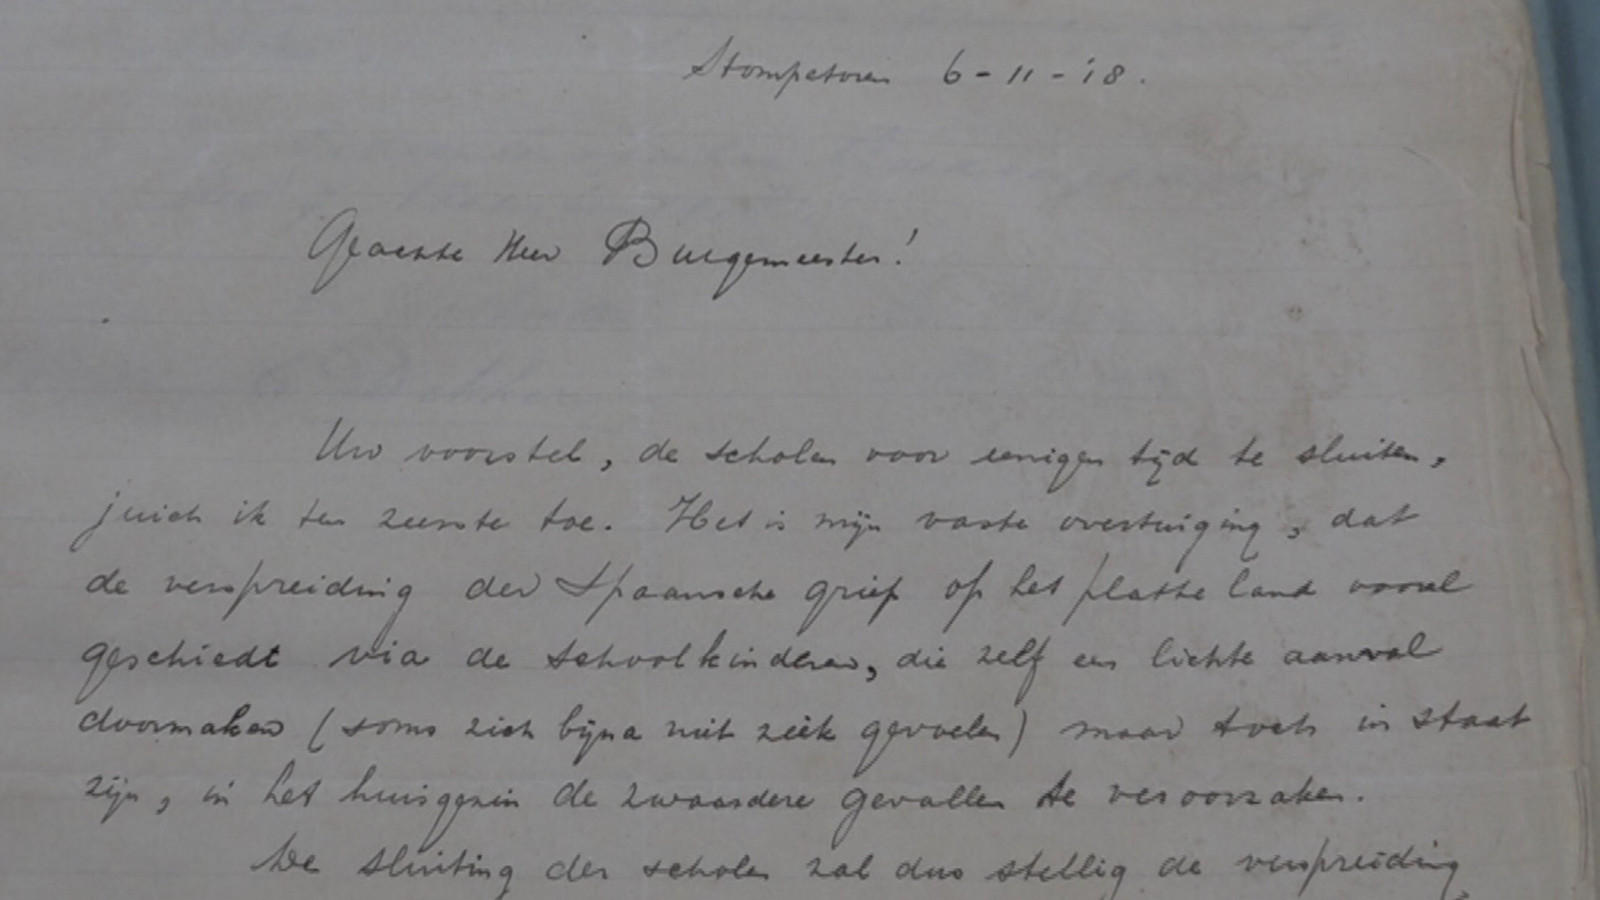 Stompetoren 6-11-'18.
Geachte Heer Burgemeester!
Uw voorstel, de scholen voor eenigen tijd te sluiten,
juich ik ten zeerste toe. Het is mijn vaste overtuiging, dat
de verspreiding der Spaansche griep op het platte land vooral
geschiedt via de schoolkinderen, die zelf een lichte aanval
doormaken (soms zich bijna niet ziek gevoelen) maar toch in staat
zijn, in het huisgezin de zwaardere gevallen te veroorzaken.
De sluiting der scholen zal dus stellig de verspreiding